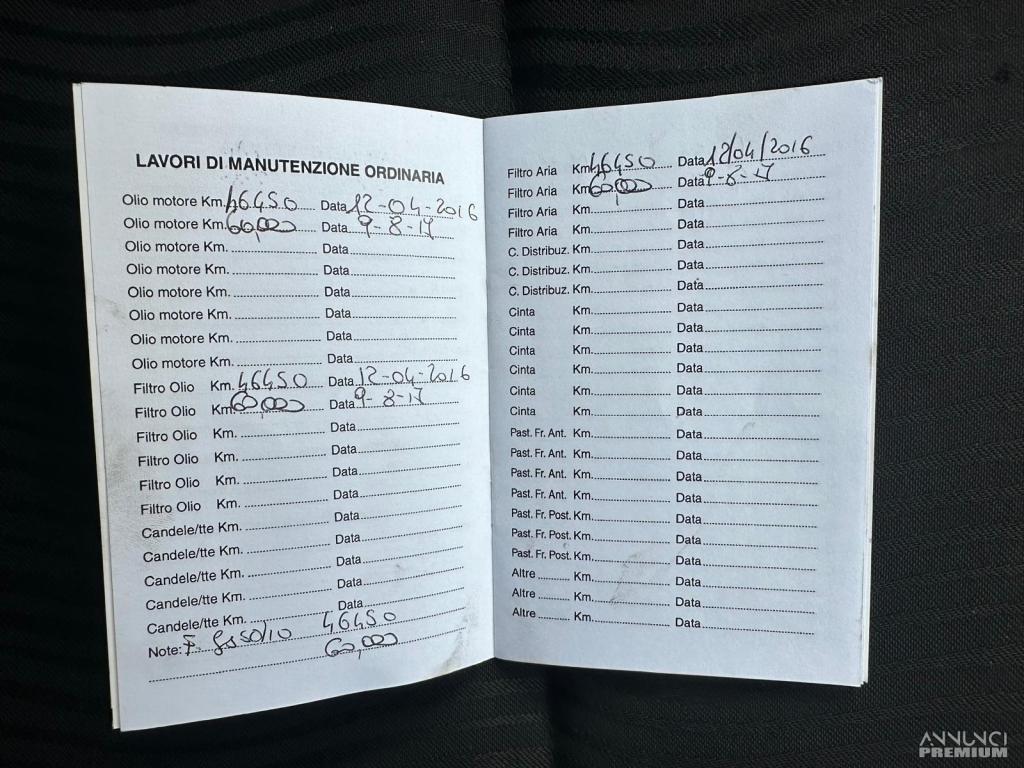 LAVORI DI MANUTENZIONE ORDINARIA
Olio motore Km. 46450 Data 12-04-2016
Olio motore Km. 60,000 Data 9-8-17
Olio motore Km. Data
Olio motore Km. Data
Olio motore Km. Data
Olio motore Km. Data
Olio motore Km. Data
Olio motore Km. Data
Filtro Olio Km. 46450 Data 12-04-2016
Filtro Olio Km. 60,000 Data 9-8-17
Filtro Olio Km. Data
Filtro Olio Km. Data
Filtro Olio Km. Data
Filtro Olio Km. Data
Candele/tte Km. Data
Candele/tte Km. Data
Candele/tte Km. Data
Candele/tte Km. Data
Candele/tte Km. Data
Note: F. gasolio 46450
60,000
Filtro Aria Km. 46450 Data 12/04/2016
Filtro Aria Km. 60,000 Data 9-8-17
Filtro Aria Km. Data
Filtro Aria Km. Data
C. Distribuz. Km. Data
C. Distribuz. Km. Data
C. Distribuz. Km. Data
Cinta Km. Data
Cinta Km. Data
Cinta Km. Data
Cinta Km. Data
Cinta Km. Data
Cinta Km. Data
Past. Fr. Ant. Km. Data
Past. Fr. Ant. Km. Data
Past. Fr. Ant. Km. Data
Past. Fr. Ant. Km. Data
Past. Fr. Post. Km. Data
Past. Fr. Post. Km. Data
Past. Fr. Post. Km. Data
Altre Km. Data
Altre Km. Data
Altre Km. Data
ANNUNCI
PREMIUM